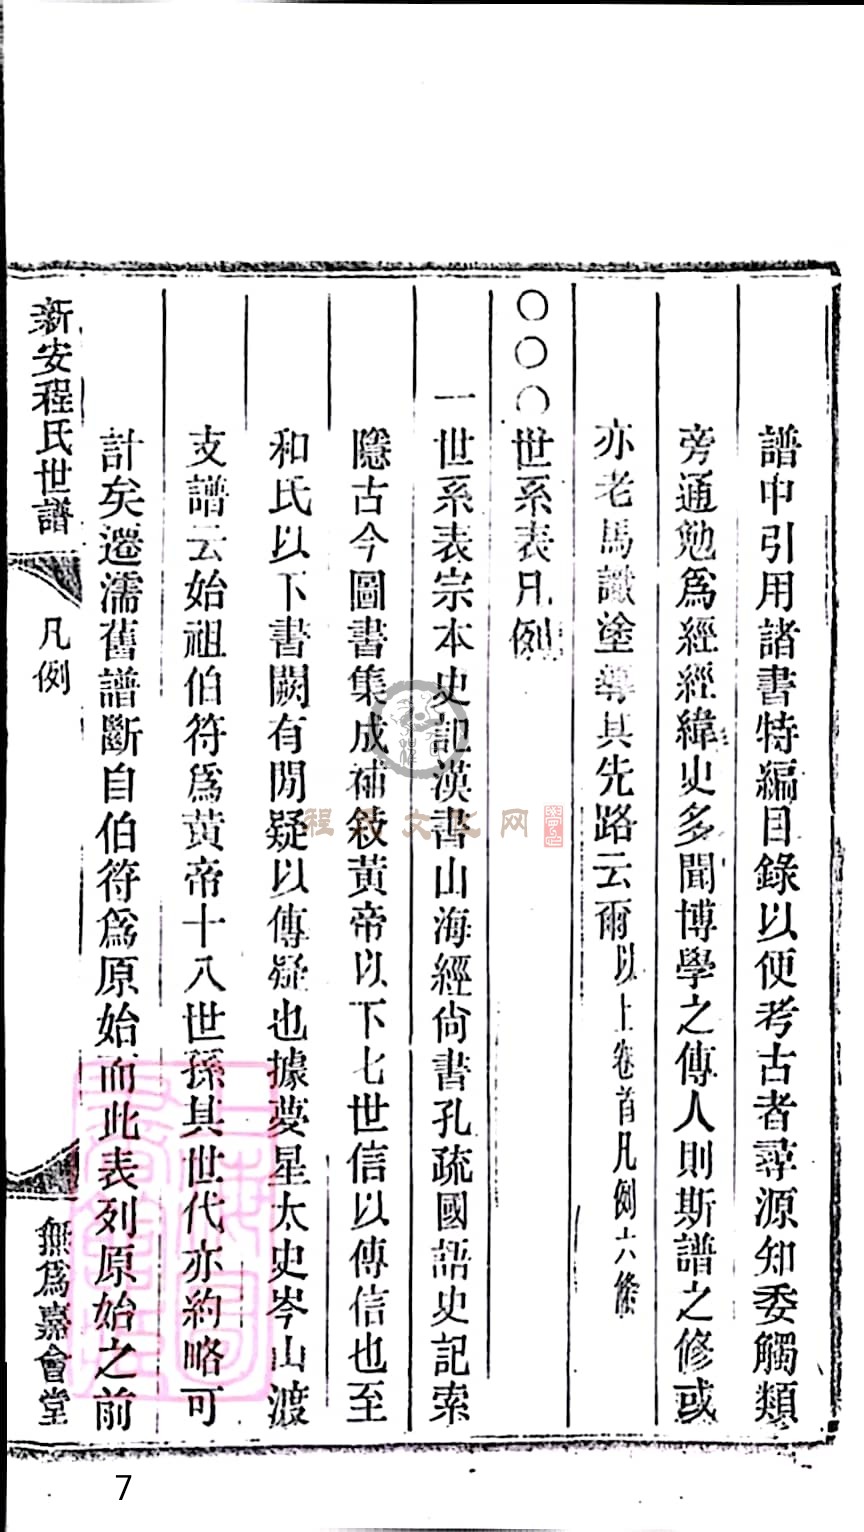 譜中引用諸書特編目錄以便考古者尋源知委觸類
旁通勉為經經緯史多聞博學之傳人則斯譜之修或
亦老馬識塗導其先路云爾以上卷首凡例六條
〇〇〇世系表凡例
一世系表宗本史記漢書山海經尙書孔疏國語史記索
隱古今圖書集成補敍黃帝以下七世信以傳信也至
和氏以下書闕有閒疑以傳疑也據夢星太史岑山渡
支譜云始祖伯符為黃帝十八世孫其世代亦約略可
計矣遷濡舊譜斷自伯符為原始而此表列原始之前
新安程氏世譜
凡例
無為嘉會堂
程氏文化网
7